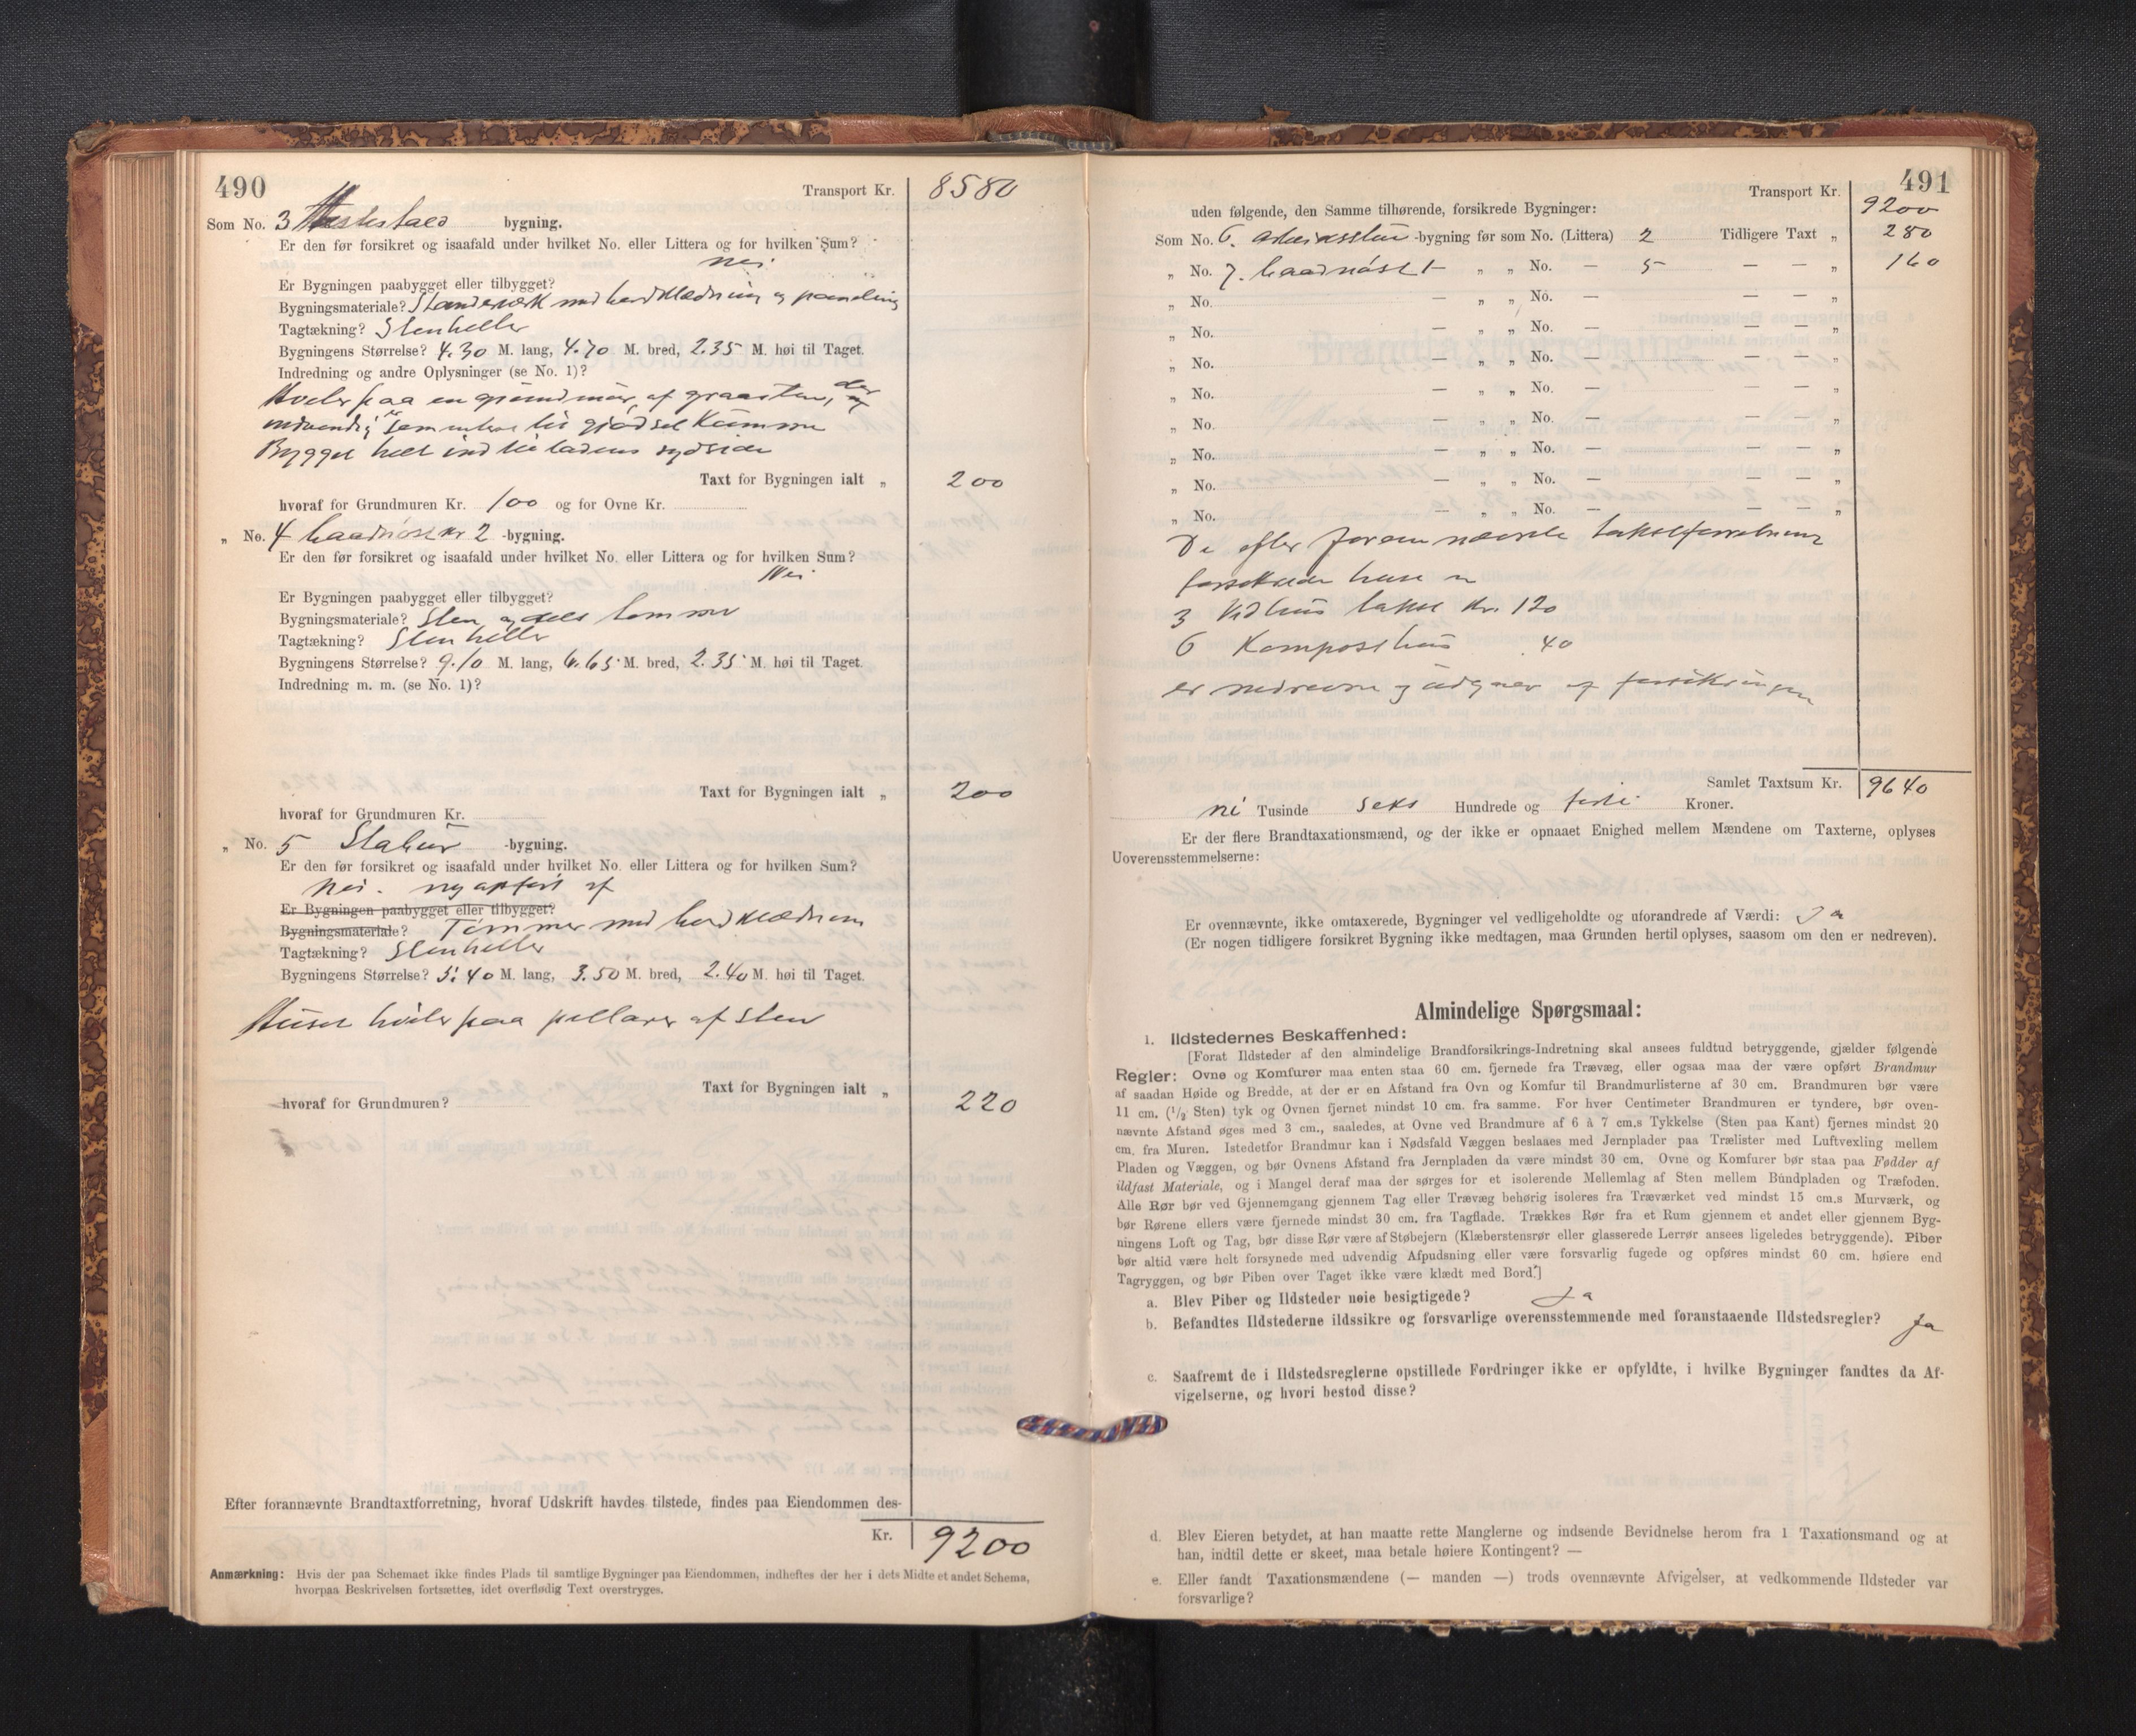 490
Transport Kr. 8580
Som No. 3 Hestestald bygning.
Er den før forsikret og isaafald under hvilket No. eller Littera og for hvilken Sum?
nei
Er Bygningen paabygget eller tilbygget?
Bygningsmateriale? Standerværk med bordklædning og paneling
Tagtækning? Stenheller
Bygningens Størrelse? 4.30 M. lang, 4.70 M. bred, 2.35 M. høi til Taget.
Indredning og andre Oplysninger (se No. 1)?
Hviler paa en grundmur af graasten, der
indvendig er til gjødselkummer
Bygget helt ind til ladens sydside
Taxt for Bygningen ialt „ 200
hvoraf for Grundmuren Kr. 100 og for Ovne Kr.
„ No. 4 Baadnøst nr 2 -bygning.
Er den før forsikret og isaafald under hvilket No. eller Littera og for hvilken Sum?
Nei
Er Bygningen paabygget eller tilbygget?
Bygningsmateriale? Sten og dels tømmer
Tagtækning? Stenheller
Bygningens Størrelse? 9.10 M. lang, 6.65 M. bred, 2.35 M. høi til Taget.
Indredning m. m. (se No. 1)?
Taxt for Bygningen ialt „ 200
hvoraf for Grundmuren Kr.
„ No. 5 Stabur -bygning.
Er den før forsikret og isaafald under hvilket No. eller Littera og for hvilken Sum?
Nei. ny opført af
Er Bygningen paabygget eller tilbygget?
Bygningsmateriale? Tømmer med bordklædning
Tagtækning? Stenheller
Bygningens Størrelse? 5.40 M. lang, 3.50 M. bred, 2.40 M. høi til Taget.
Huset hviler paa pillarer af sten
Taxt for Bygningen ialt „ 220
hvoraf for Grundmuren?
Efter forannævnte Brandtaxtforretning, hvoraf Udskrift havdes tilstede, findes paa Eiendommen des-
Kr. 9200
Anmærkning: Hvis der paa Schemaet ikke findes Plads til samtlige Bygninger paa Eiendommen, indheftes der her i dets Midte et andet Schema,
hvorpaa Beskrivelsen fortsættes, idet overflødig Text overstryges.
491
Transport Kr. 9200
uden følgende, den Samme tilhørende, forsikrede Bygninger:
Som No. 6. Arbeidsstue -bygning før som No. (Littera) 2 Tidligere Taxt „ 280
„ No. 7. Baadnøst 1 — „ „ No. — 5 — — „ 160
„ No. — „ „ No. — — — „
„ No. — „ „ No. — — — „
„ No. — „ „ No. — — — „
„ No. — „ „ No. — — — „
„ No. — „ „ No. — — — „
„ No. — „ „ No. — — — „
„ No. — „ „ No. — — — „
„ No. — „ „ No. — — — „
De efter forannævnte takstforretning
forsikrede huse nr
3 Vedhus takst Kr. 120
6 Komposthus 40
er nedrevne og udgaar af forsikringen
Samlet Taxtsum Kr. 9640
ni Tusinde seks Hundrede og førti Kroner.
Er der flere Brandtaxationsmænd, og der ikke er opnaaet Enighed mellem Mændene om Taxterne, oplyses
Uoverensstemmelserne:
Er ovennævnte, ikke omtaxerede, Bygninger vel vedligeholdte og uforandrede af Værdi: Ja
(Er nogen tidligere forsikret Bygning ikke medtagen, maa Grunden hertil oplyses, saasom om den er nedreven).
Almindelige Spørgsmaal:
1. Ildstedernes Beskaffenhed:
[Forat Ildsteder af den almindelige Brandforsikrings-Indretning skal ansees fuldtud betryggende, gjælder følgende
Regler: Ovne og Komfurer maa enten staa 60 cm. fjernede fra Trævæg, eller ogsaa maa der være opført Brandmur
af saadan Høide og Bredde, at der er en Afstand fra Ovn og Komfur til Brandmurlisterne af 30 cm. Brandmuren bør være
11 cm. (1/2 Sten) tyk og Ovnen fjernet mindst 10 cm. fra samme. For hver Centimeter Brandmuren er tyndere, bør oven-
nævnte Afstand øges med 3 cm., saaledes, at Ovne ved Brandmure af 6 à 7 cm.s Tykkelse (Sten paa Kant) fjernes mindst 20
cm. fra Muren. Istedetfor Brandmur kan i Nødsfald Væggen beslaaes med Jernplader paa Trælister med Luftvexling mellem
Pladen og Væggen, og bør Ovnens Afstand fra Jernpladen da være mindst 30 cm. Ovne og Komfurer bør staa paa Fødder af
ildfast Materiale, og i Mangel deraf maa der sørges for et isolerende Mellemlag af Sten mellem Bundpladen og Træfoden.
Alle Rør bør ved Gjennemgang gjennem Tag eller Trævæg behørig isoleres fra Træværket ved mindst 15 cm.s Murværk, og
bør Rørene ellers være fjernede mindst 30 cm. fra Tagflade. Trækkes Rør fra et Rum gjennem et andet eller gjennem Byg-
ningens Loft og Tag, bør disse Rør være af Støbejern (Klæberstensrør eller glasserede Lerrør ansees ligeledes betryggende). Piber
bør altid være helt forsynede med udvendig Afpudsning eller være forsvarlig fugede og opføres mindst 60 cm. høiere end
Tagryggen, og bør Piben over Taget ikke være klædt med Bord.]
a. Blev Piber og Ildsteder nøie besigtigede? Ja
b. Befandtes Ildstederne ildssikre og forsvarlige overensstemmende med foranstaaende Ildstedsregler? Ja
c. Saafremt de i Ildstedsreglerne opstillede Fordringer ikke er opfyldte, i hvilke Bygninger fandtes da Af-
vigelserne, og hvori bestod disse?
d. Blev Eieren betydet, at han maatte rette Manglerne og indsende Bevidnelse herom fra 1 Taxationsmand og at
han, indtil dette er skeet, maa betale høiere Kontingent? —
e. Eller fandt Taxationsmændene (— manden —) trods ovennævnte Afvigelser, at vedkommende Ildsteder var
forsvarlige?